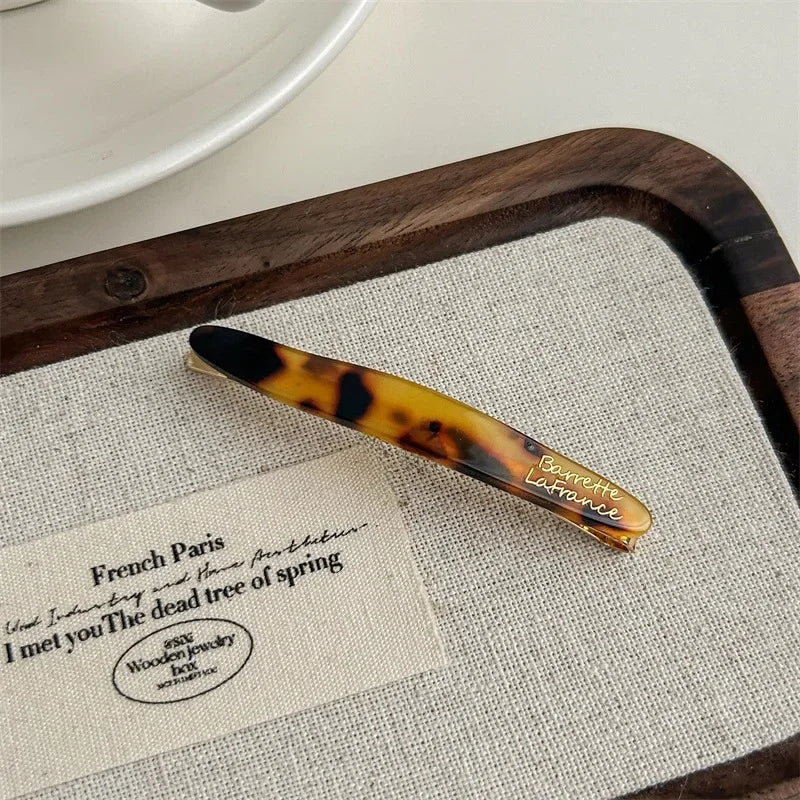 Barrette
LaFrance
French Paris
Wood Industry and Home Aesthetics
I met youThe dead tree of spring
Wooden jewolry
box